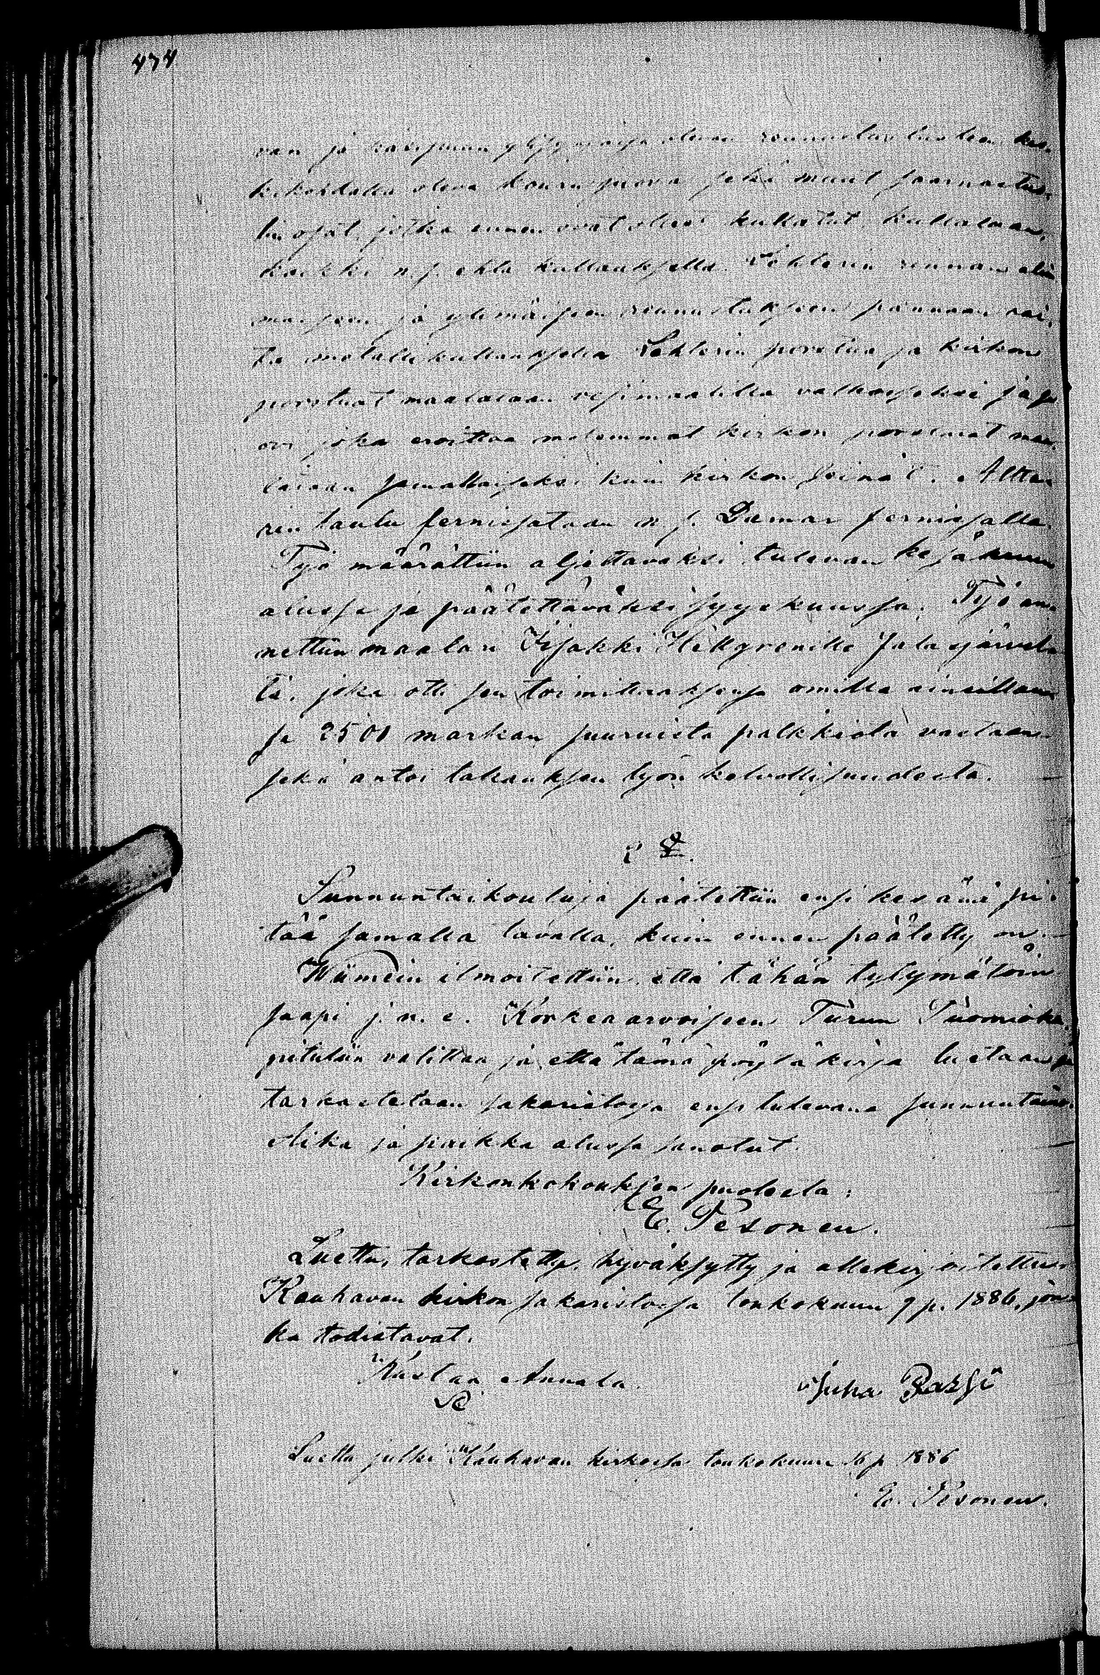 474
van ja
kikohdalla oleva koura jossa sekä muut
jotka ennen ovat olleet kullatut, kullataan,
kaikki n. s. ehta kullauksella. Lehterin rinnan
ja ylimäisen rinnustukseen pannaan
ta metalli kullauksella. Lehterin porstua ja kirkon
porstuat maalataan vesimaalilla valkoiseksi ja se
ovi joka eroittaa molemmat kirkon porstuat maa-
lataan samallaiseksi kuin kirkon seinät. Altta-
rin taulu fernissataan n. s. Damar fernissalla.
Työ määrättiin aljettavaksi tulevan kesäkuun
alussa ja päätettäväksi syyskuussa. Työ an-
nettiin maalari Iisakki Hellgrenille Jalasjärvel-
tä, joka otti sen toimittaaksensa omilla aineillaan
ja 2501 markan suuruista palkkiota vastaan
sekä antoi takauksen työn kelvollisuudesta.
2 §.
Sunnuntaikouluja päätettiin ensi kesänä pi-
tää samalla tavalla, kuin ennen päätetty on.
Wiimein ilmoitettiin, että tähän tytymätöin
saapi j. n. e. Korkeaarvoiseen Turun Tuomioka-
pituliin valittaa ja että tämä pöytäkirja luetaan ja
tarkastetaan sakaristossa ensi tulevana sunnuntaina.
Aika ja paikka alussa sanotut.
Kirkonkokouksen puolesta:
E. Pesonen.
Luettu, tarkastettu, hyväksytty ja allekirjoitettu
Kauhavan kirkon sakaristossa toukokuun 9 p. 1886, jon-
ka todistavat.
Kustaa Annala. Juha Passi
Luettu julki Kauhavan kirkossa toukokuun 16 p. 1886
E. Pesonen.